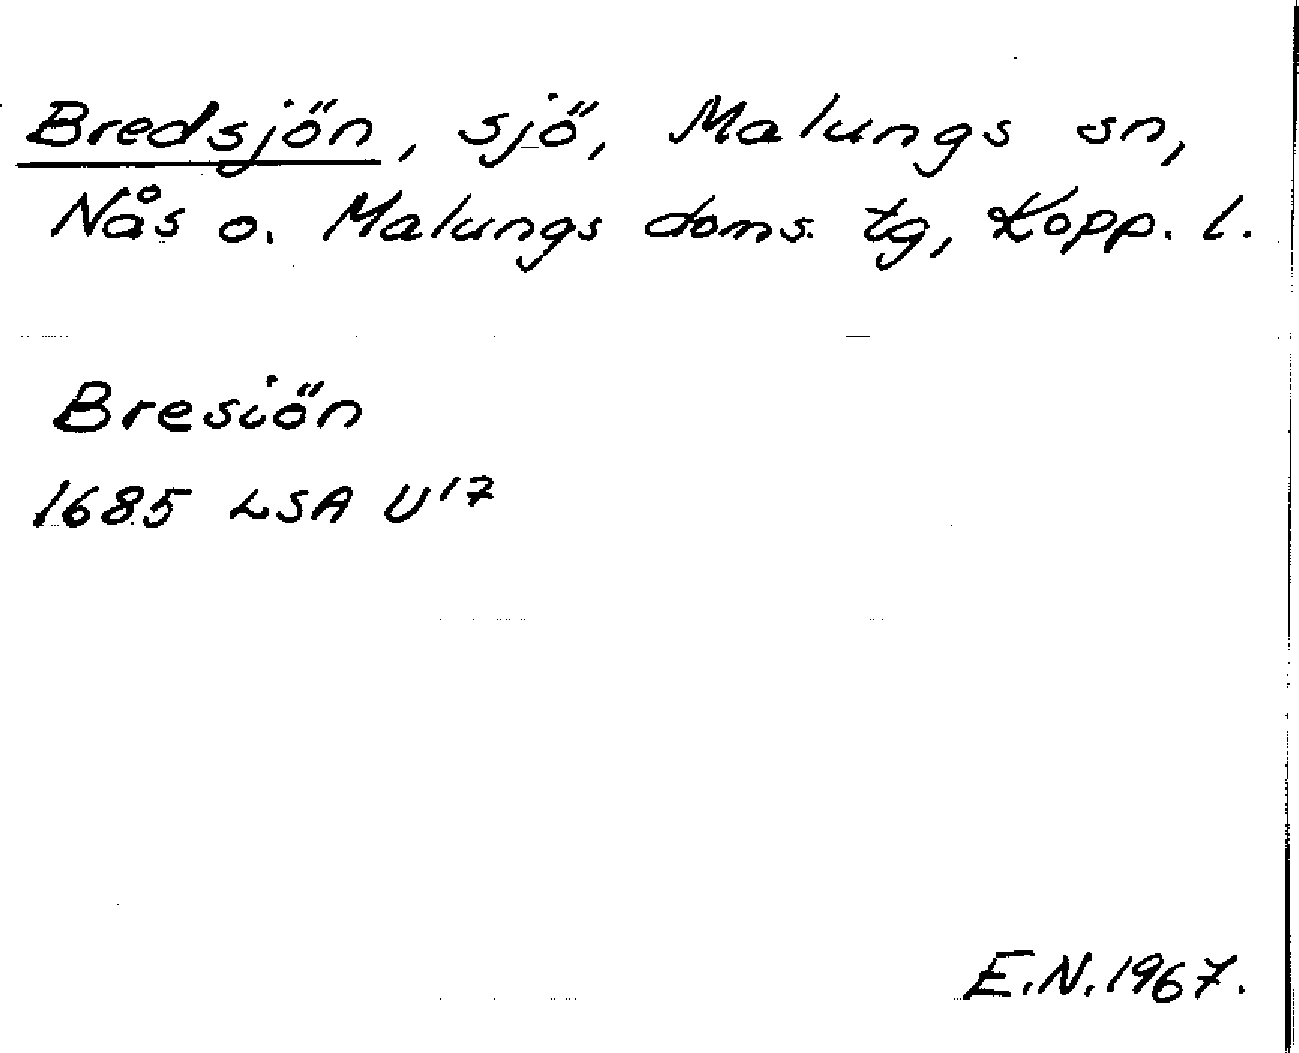 Bredsjön, sjö, Malungs sn,
Nås o. Malungs doms. tg, Kopp. l.
Bresiön
1685 LSA U¹⁷
E.N. 1967.